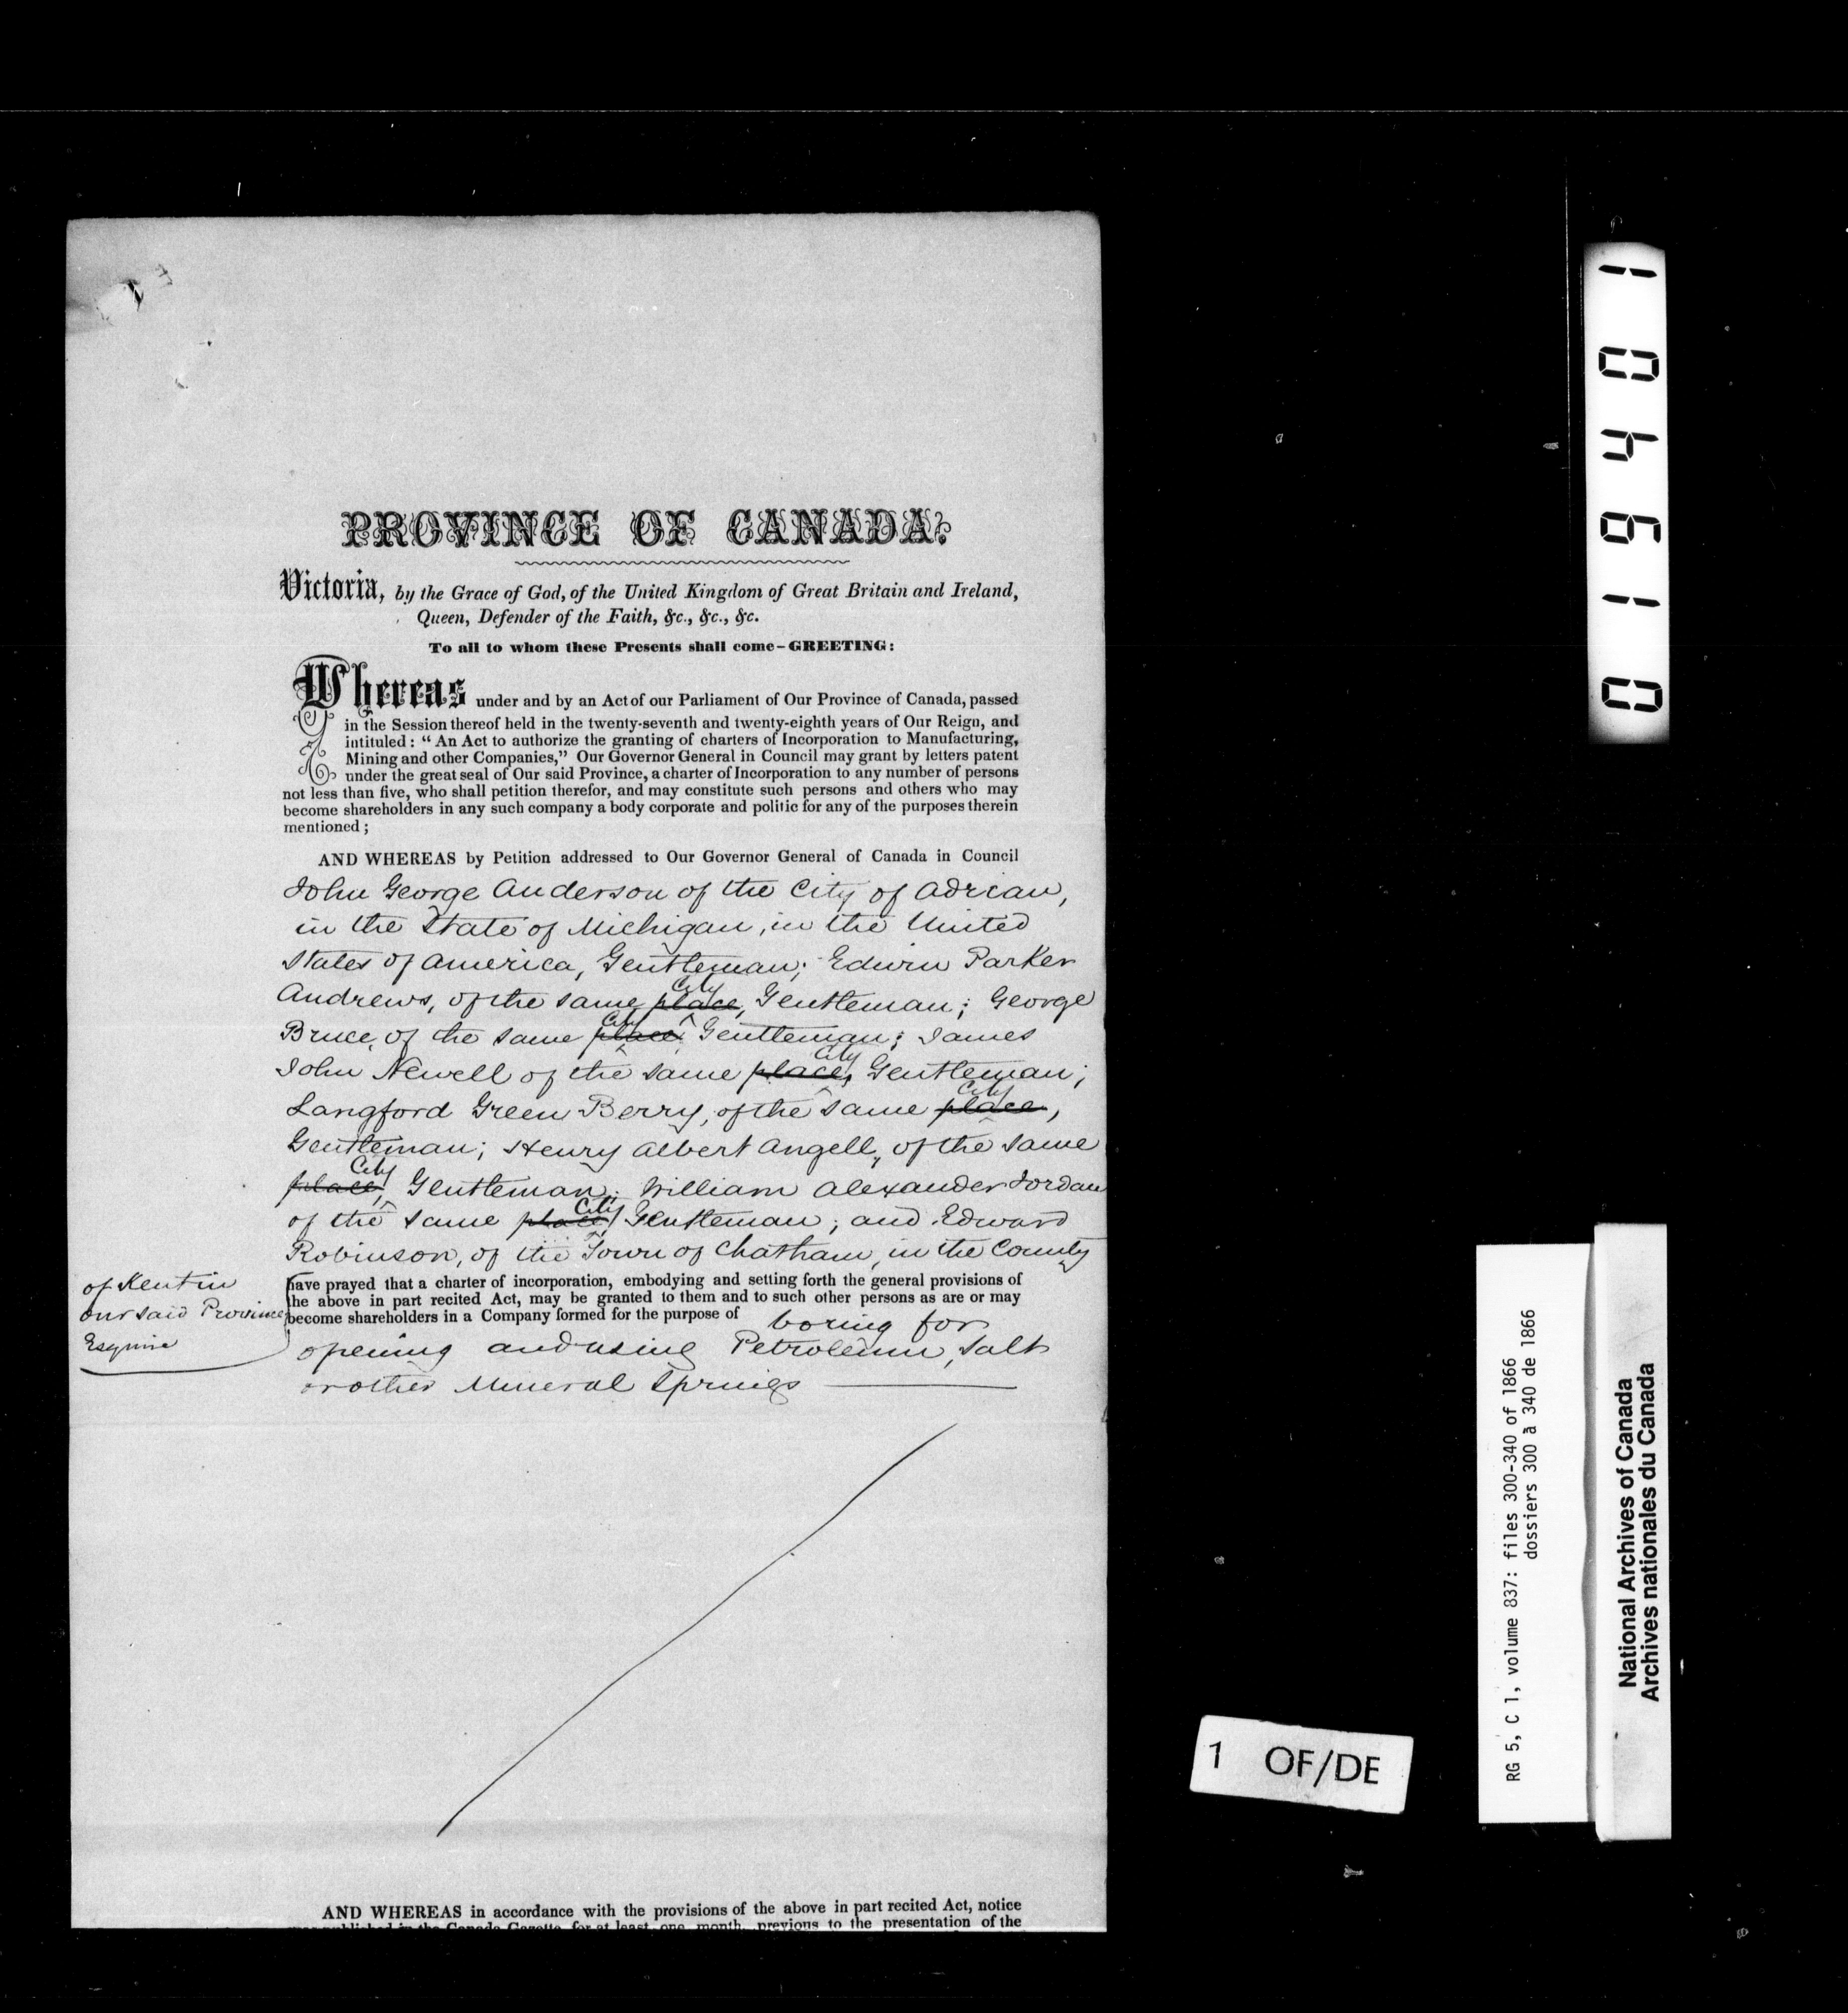 PROVINCE OF CANADA.
Victoria, by the Grace of God, of the United Kingdom of Great Britain and Ireland,
Queen, Defender of the Faith, &c., &c., &c.
To all to whom these Presents shall come—GREETING:
Whereas under and by an Act of our Parliament of Our Province of Canada, passed
in the Session thereof held in the twenty-seventh and twenty-eighth years of Our Reign, and
intituled: "An Act to authorize the granting of charters of Incorporation to Manufacturing,
Mining and other Companies," Our Governor General in Council may grant by letters patent
under the great seal of Our said Province, a charter of Incorporation to any number of persons
not less than five, who shall petition therefor, and may constitute such persons and others who may
become shareholders in any such company a body corporate and politic for any of the purposes therein
mentioned;
AND WHEREAS by Petition addressed to Our Governor General of Canada in Council
John George Anderson of the City of Adrian,
in the State of Michigan, in the United
States of America, Gentleman; Edwin Parker
Andrews, of the same place, City Gentleman; George
Bruce, of the same place City Gentleman; James
John Newell of the same place, City Gentleman;
Langford Green Berry, of the same place, City
Gentleman; Henry Albert Angell, of the same
place, City Gentleman; William Alexander Jordan
of the same place City Gentleman; and Edward
Robinson, of the Town of Chatham, in the County
of Kent in
our said Province
Esquire
have prayed that a charter of incorporation, embodying and setting forth the general provisions of
the above in part recited Act, may be granted to them and to such other persons as are or may
become shareholders in a Company formed for the purpose of boring for
opening and using Petroleum, Salt
or other Mineral Springs
AND WHEREAS in accordance with the provisions of the above in part recited Act, notice
was published in the Canada Gazette, for at least one month, previous to the presentation of the
1 OF/DE
RG 5, C 1, volume 837: files 300-340 of 1866
dossiers 300 à 340 de 1866
National Archives of Canada
Archives nationales du Canada
019401